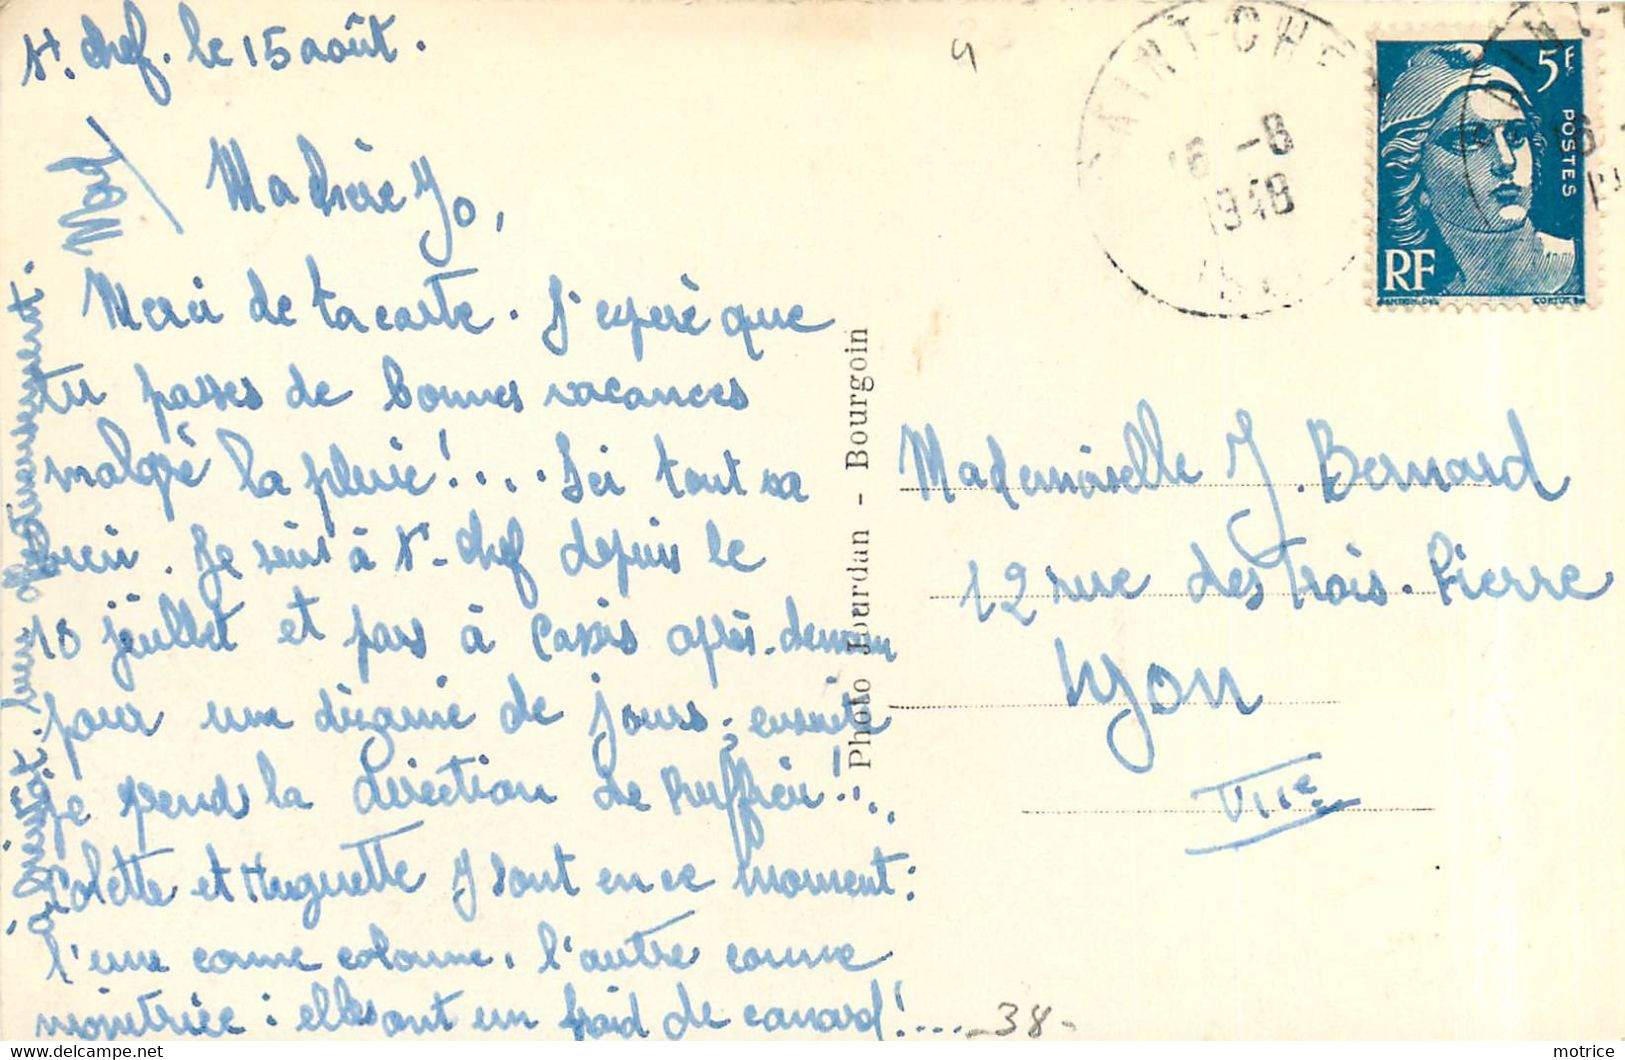 St. Chef. le 15 août.
Ma chère Jo,
Merci de ta carte. J'espère que
tu passes de bonnes vacances
malgré la pluie!... Ici tout va
bien. Je suis à St-Chef depuis le
18 juillet et pars à Cassis après-demain
pour une dizaine de jours, ensuite
je prends la direction de Ruffieu!...
Colette et Huguette y sont en ce moment:
l'une comme colonne, l'autre comme
monitrice: elles ont un froid de canard!....
à bientôt. bien affectueusement.
Photo Jourdan - Bourgoin
SAINT-CHEF
16 -8
1948
5F
POSTES
RF
GANDON.DEL
CORTOT.SC
Mademoiselle J. Bernard
12 rue des Trois-Pierre
Lyon
VIIe
-38-
motrice